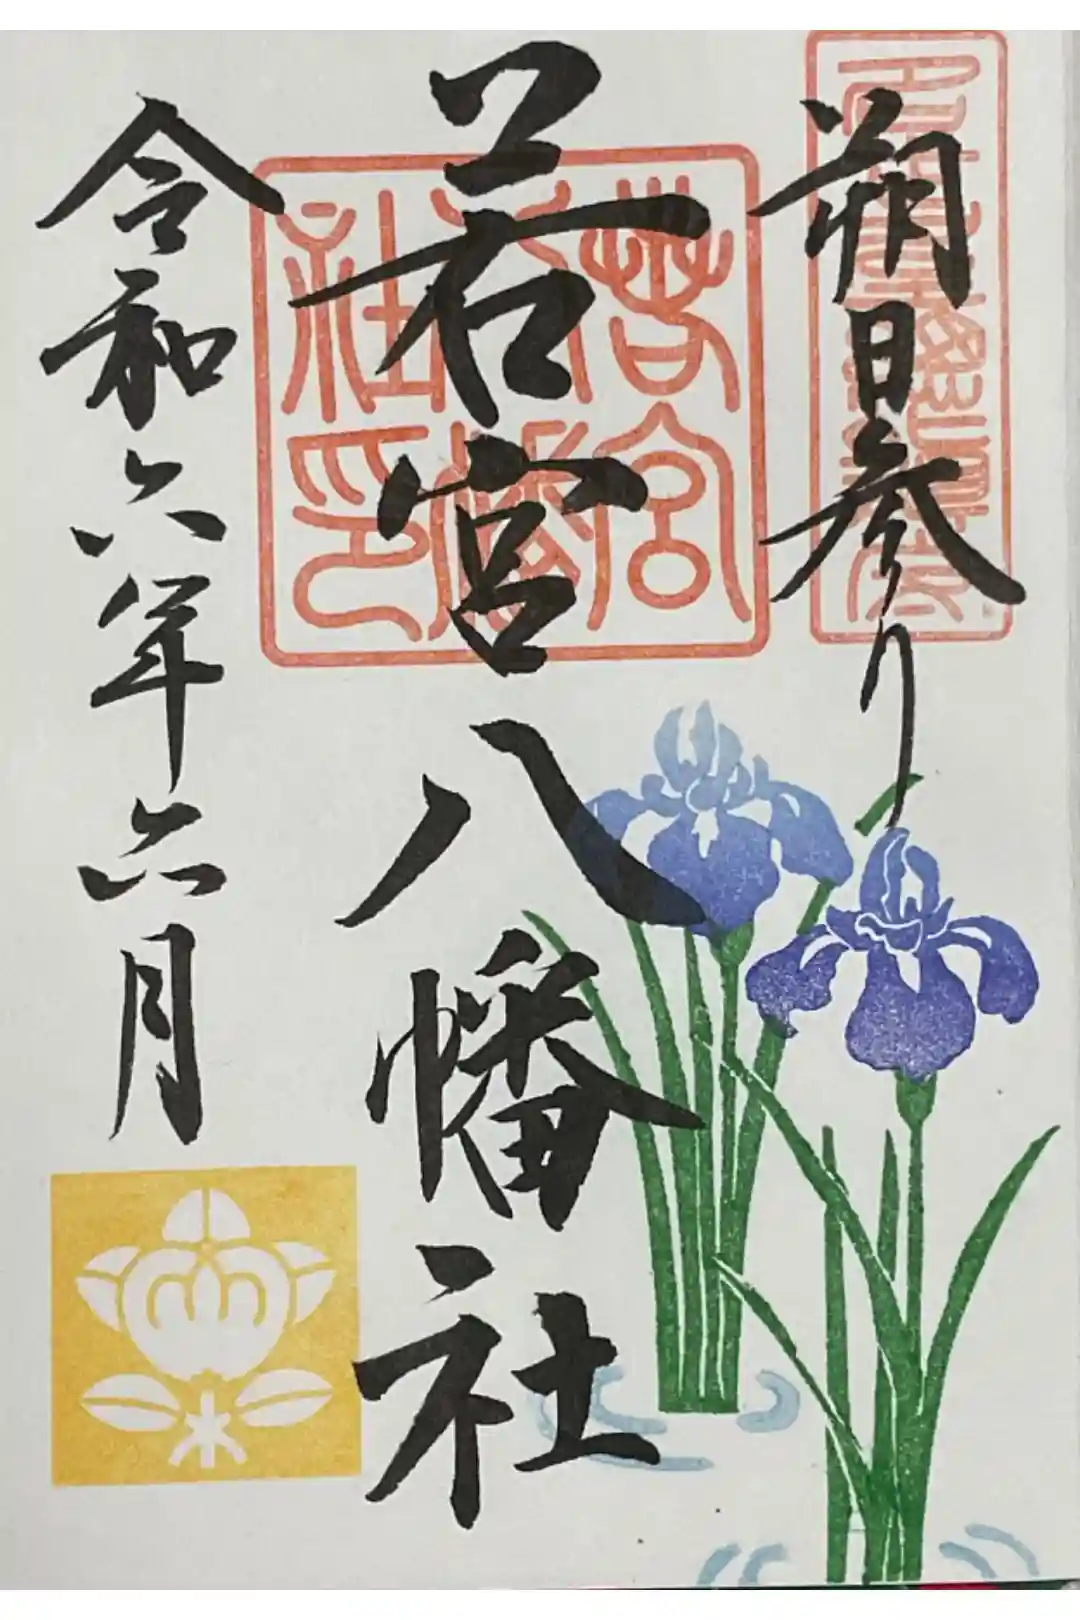 朔日参り
若宮八幡社
令和六年六月
若宮八幡社印